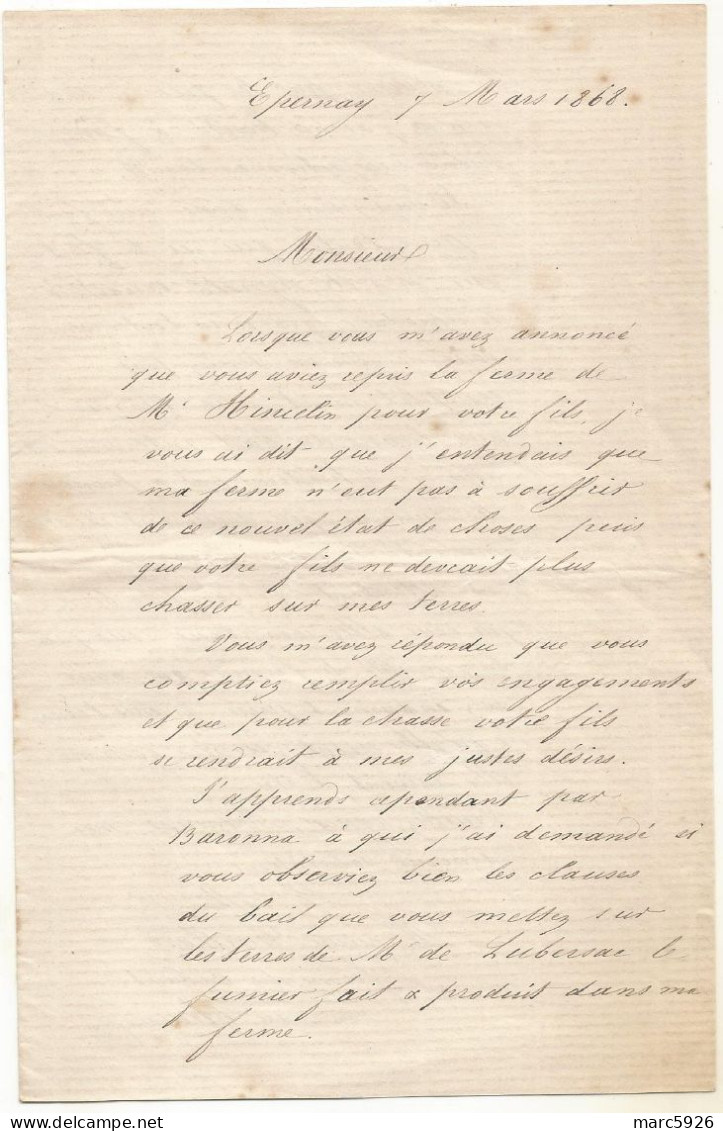 Epernay 7 Mars 1868.
Monsieur
Lorsque vous m'avez annoncé
que vous aviez repris la ferme de
Mr Hincelin pour votre fils, je
vous ai dit que j'entendais que
ma ferme n'eut pas à souffrir
de ce nouvel état de choses puis
que votre fils ne devrait plus
chasser sur mes terres.
Vous m'avez répondu que vous
comptiez remplir vos engagements
et que pour la chasse votre fils
se rendrait à mes justes désirs.
J'apprends cependant par
Baronna à qui j'ai demandé si
vous observiez bien les clauses
du bail que vous mettez sur
les terres de Mr de Lubersac le
fumier fait & produit dans ma
ferme.
marc5926